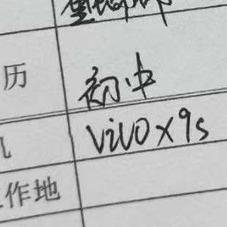 历 初中
vivo x9s
作地